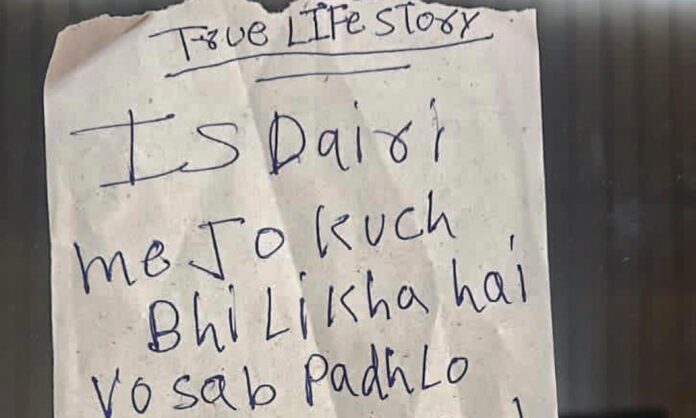 True LIFe story
IS Dairi
me Jo kuch
Bhi Likha hai
Vo sab Padh Lo